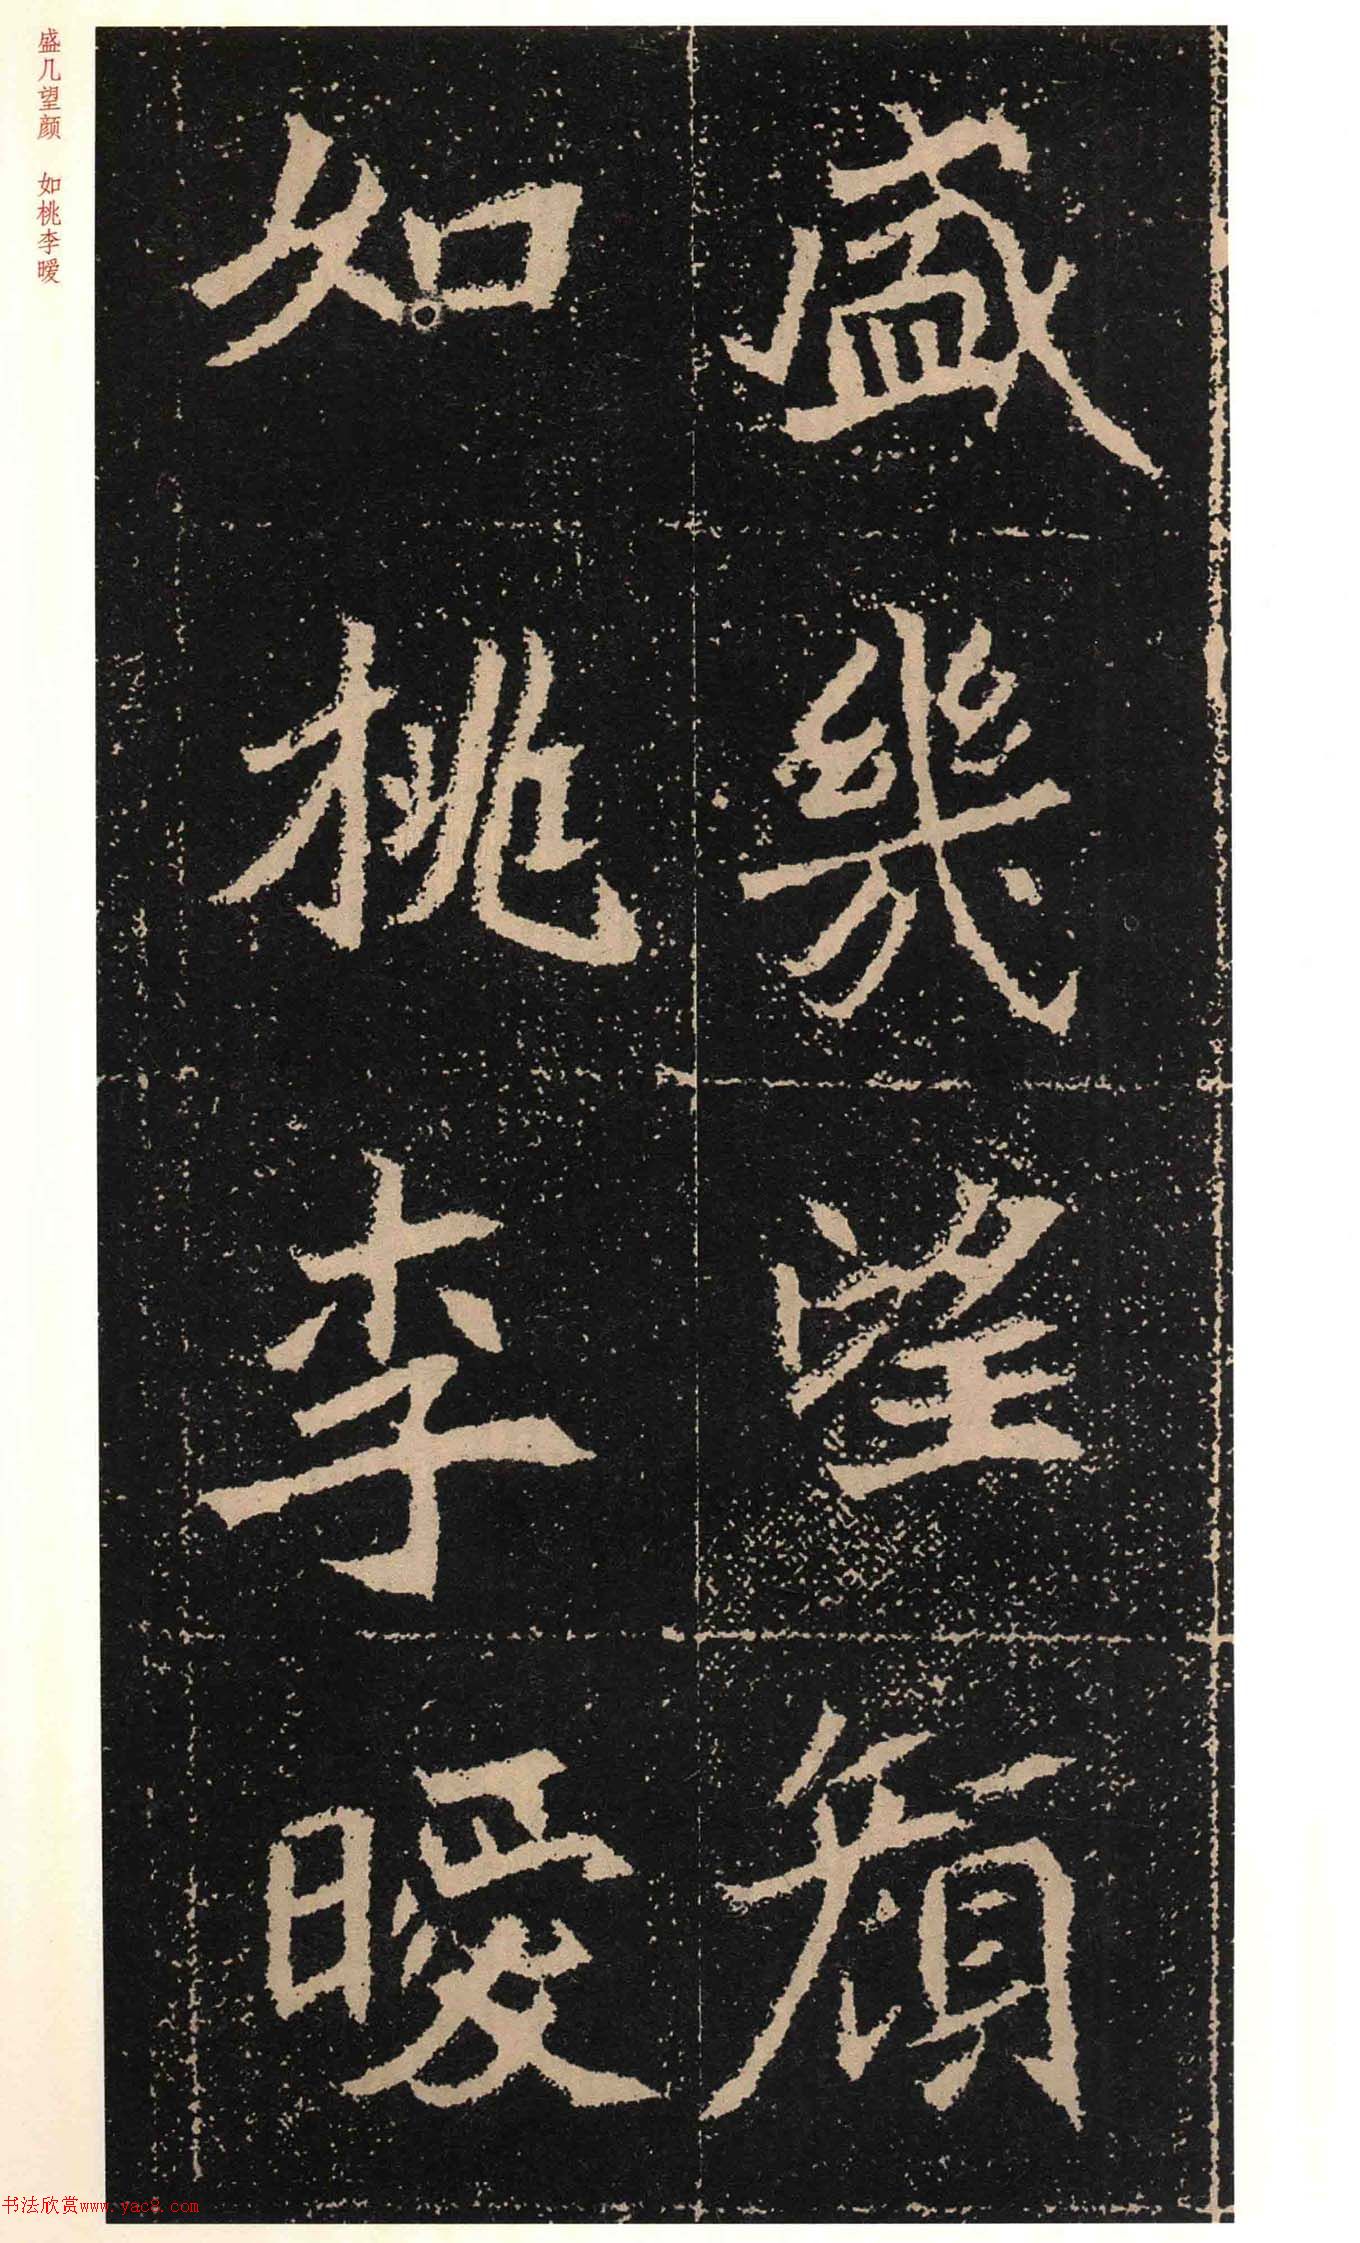 盛幾望顔
如桃李曖
盛几望颜 如桃李暧
书法欣赏www.yac8.com